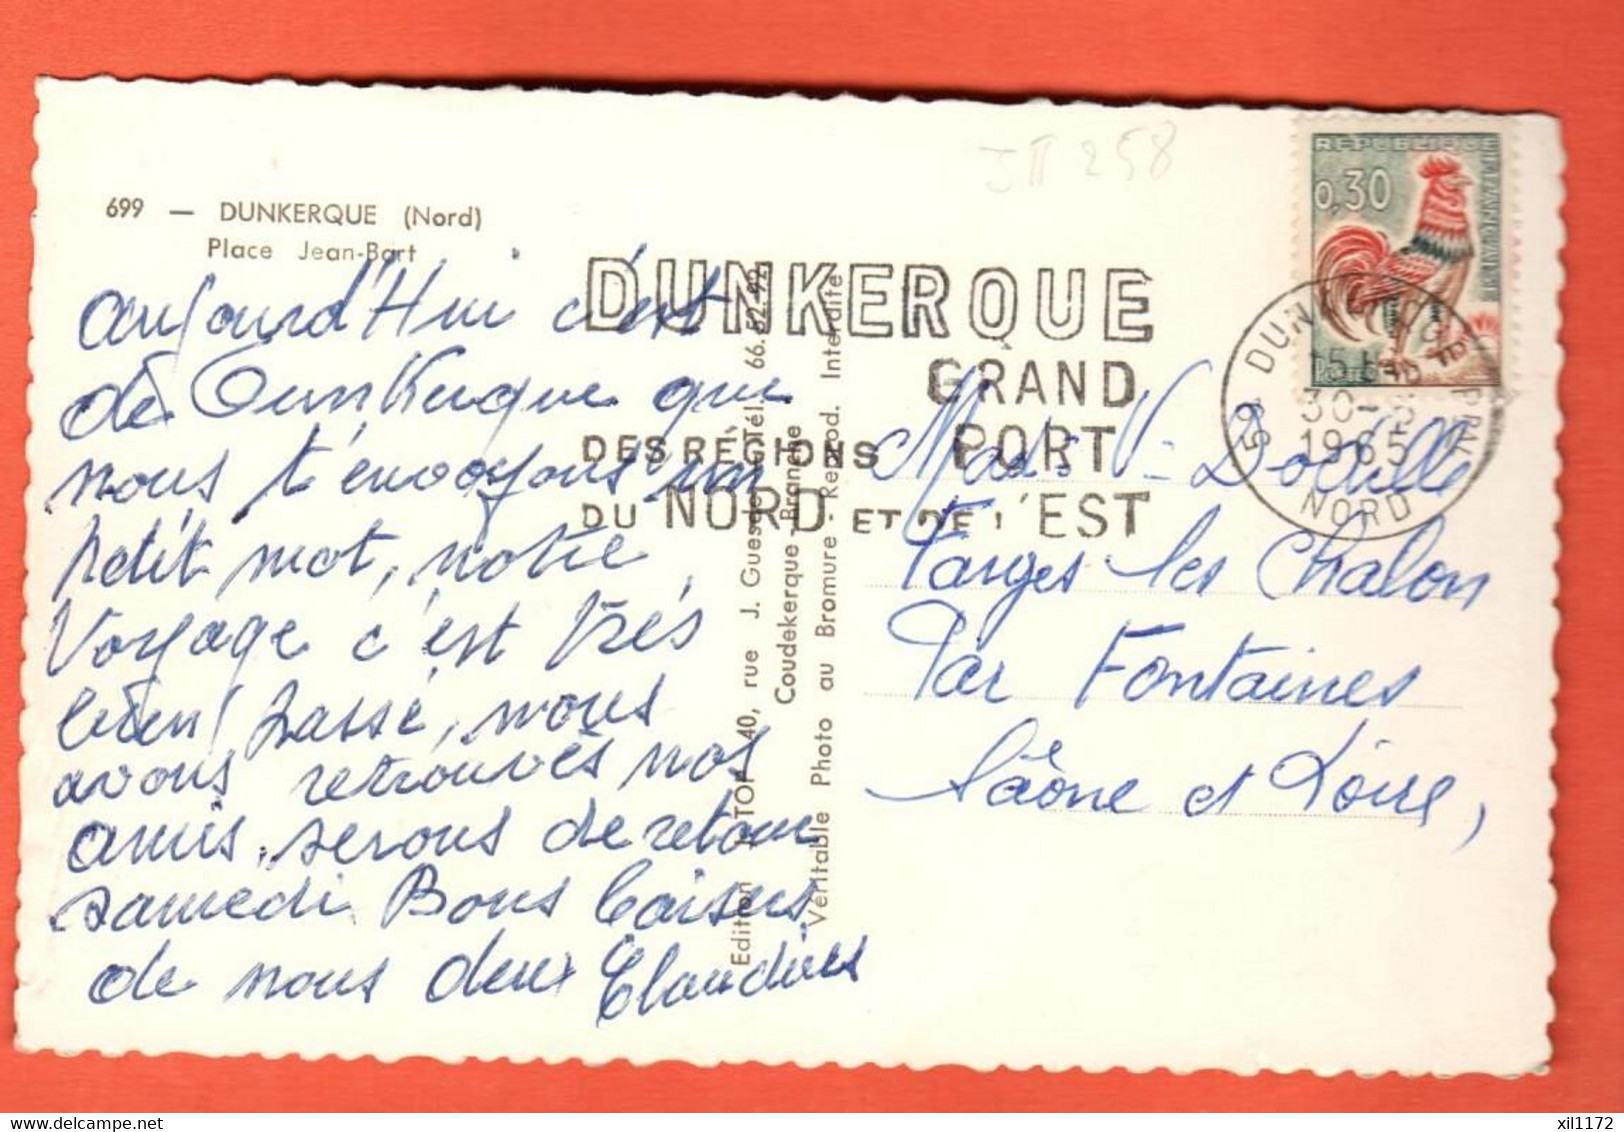 JII 258
699 — DUNKERQUE (Nord)
Place Jean-Bart
aujourd'Hui c'est
de Dunkerque que
nous t'envoyons un
petit mot, notre
Voyage c'est très
bien passé, nous
avons retrouvés nos
amis, serons de retour
samedi Bons baisers
de nous deux Claudius
Edition TOP 40, rue J. Guesde Tél. 66.52-92
Coudekerque - Branche
Véritable Photo au Bromure - Reprod. Interdite
DUNKERQUE
GRAND
PORT
DES RÉGIONS
DU NORD ET DE L'EST
RÉPUBLIQUE FRANÇAISE
0,30
Postes
59 DUNKERQUE PPAL
30-
1965
NORD
V-
Farges les Chalon
Par Fontaines
Saône et Loire,
xil1172